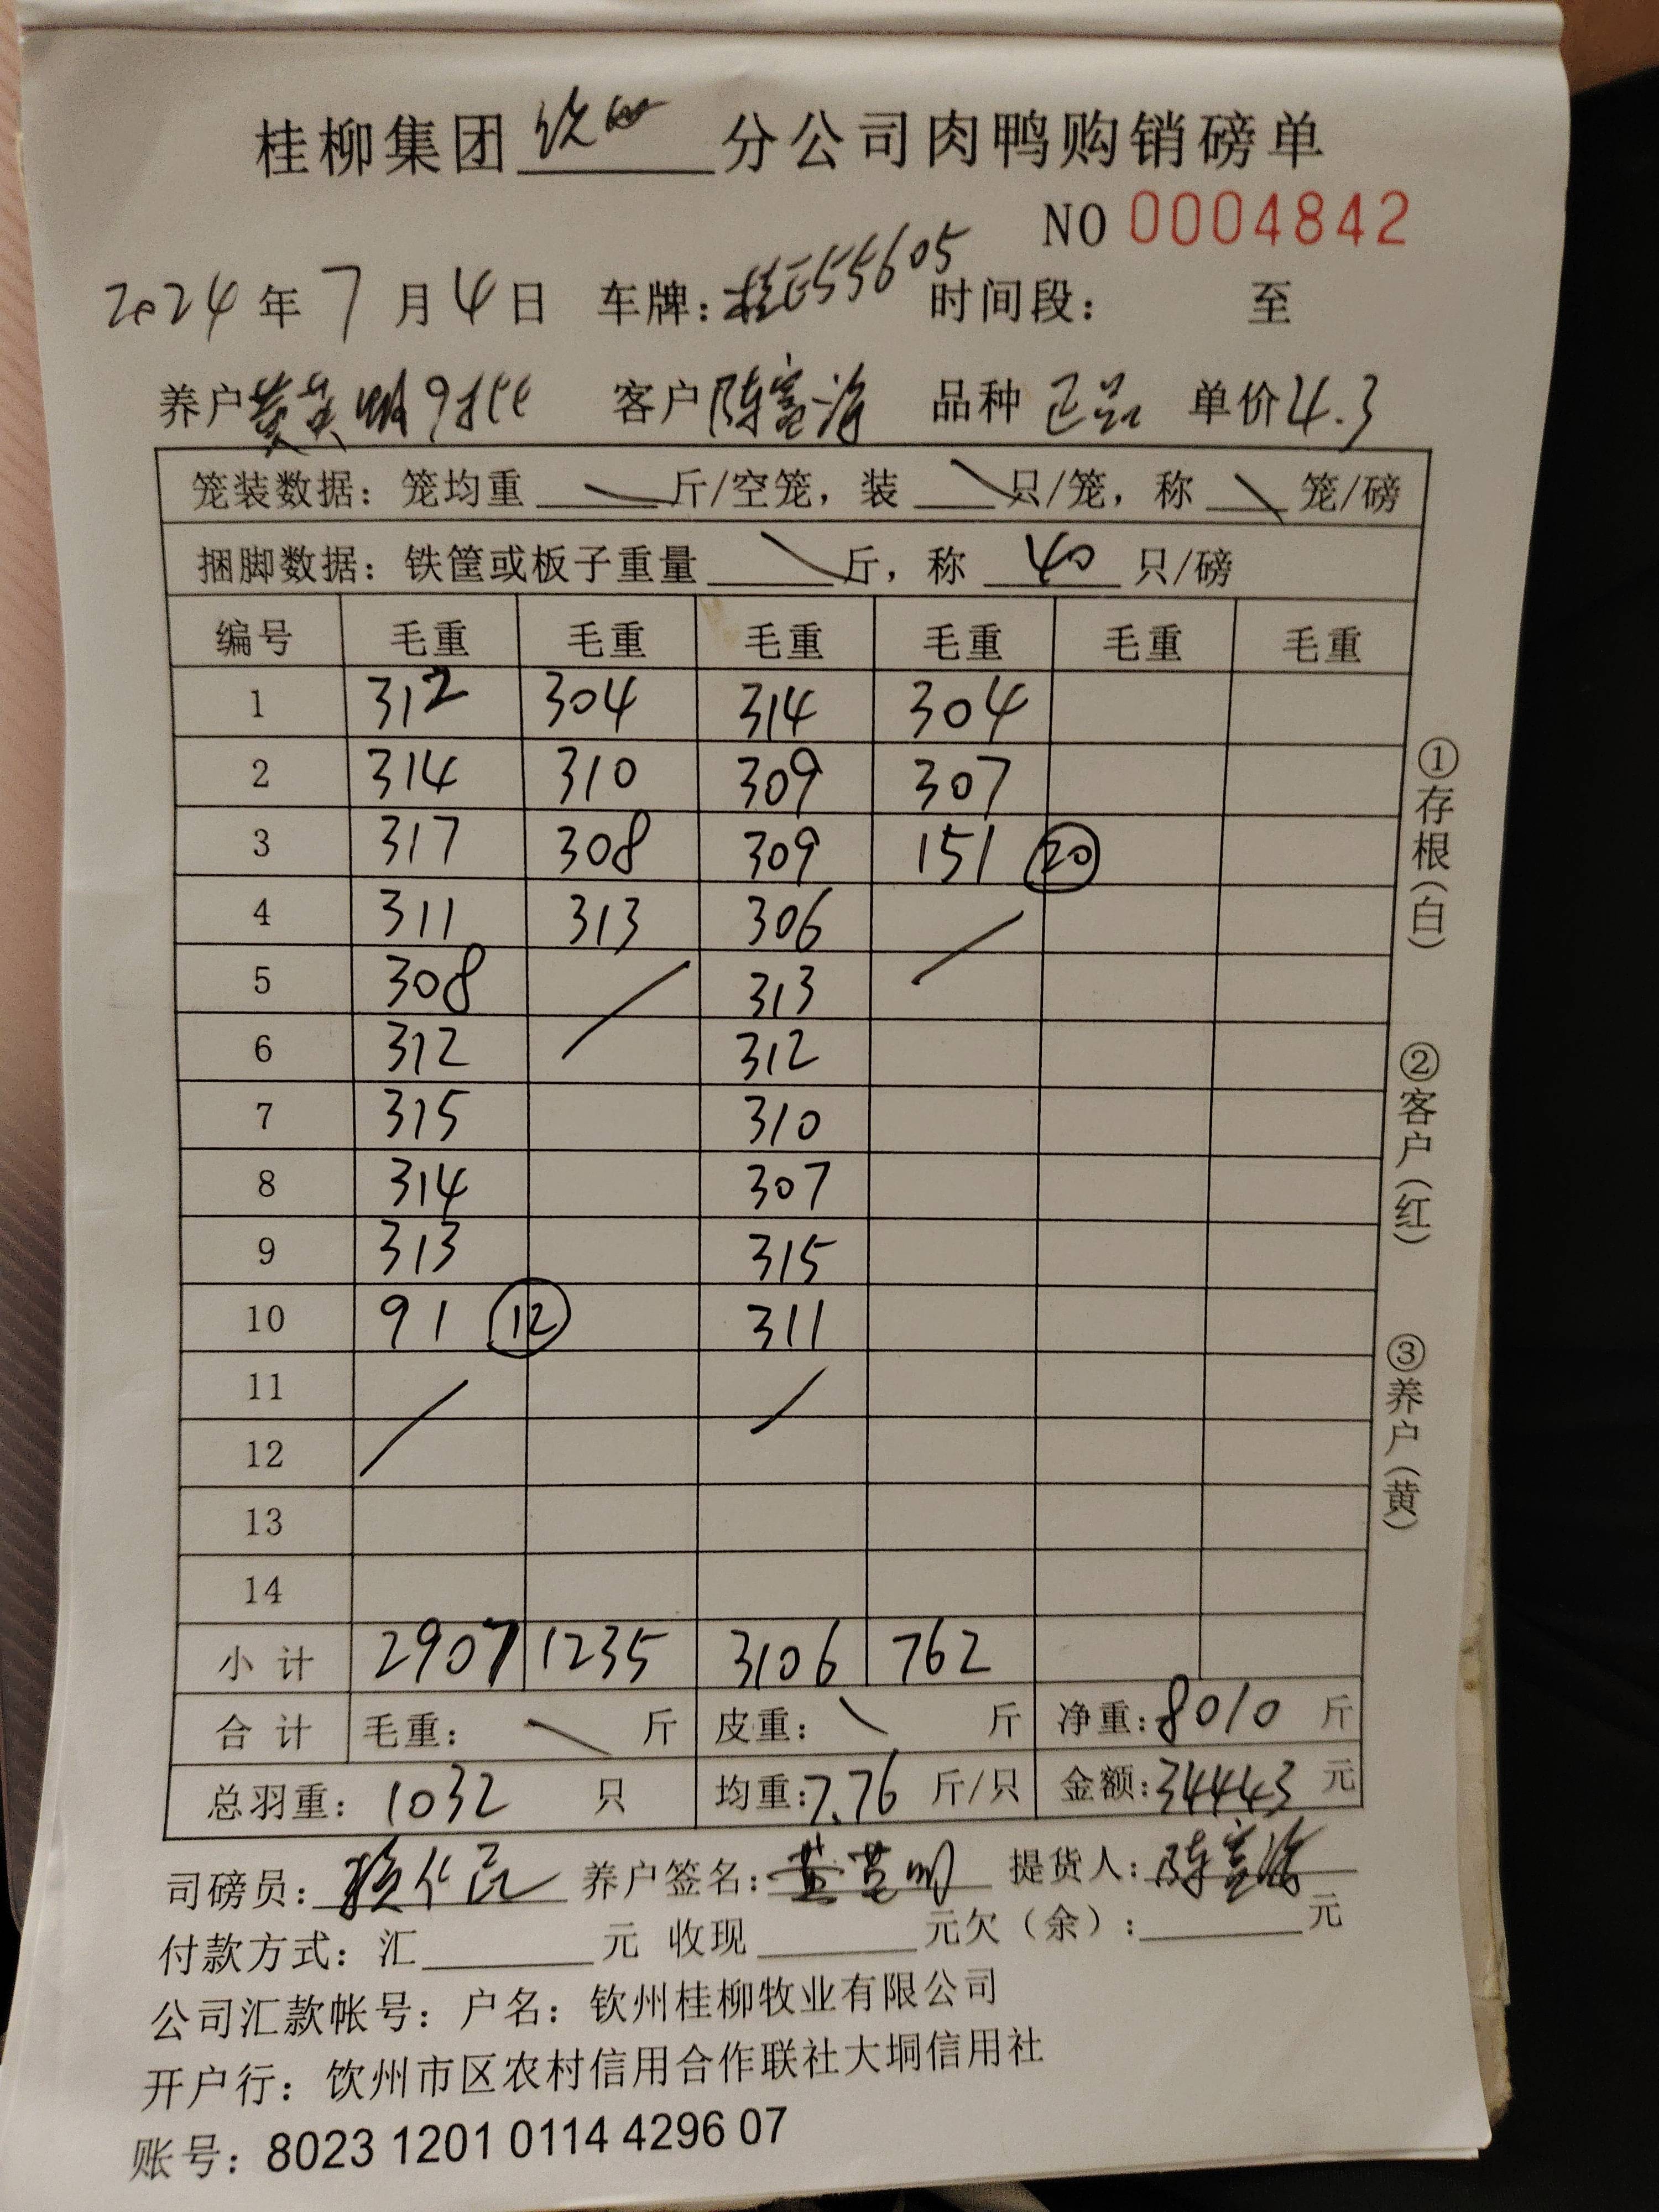 桂柳集团钦州分公司肉鸭购销磅单
NO 0004842
2024年7月4日 车牌:桂E55605 时间段: 至
养户黄英明9批 客户陈富海 品种正品 单价4.3
笼装数据: 笼均重 斤/空笼, 装 只/笼, 称 笼/磅
捆脚数据: 铁筐或板子重量 斤, 称 40 只/磅
编号 毛重 毛重 毛重 毛重 毛重 毛重
1 312 304 314 304
2 314 310 309 307
3 317 308 309 151 ⑳
4 311 313 306
5 308 313
6 312 312
7 315 310
8 314 307
9 313 315
10 91 ⑫ 311
11
12
13
14
小计 2907 1235 3106 762
合计 毛重: 斤 皮重: 斤 净重:8010 斤
总羽重: 1032 只 均重:7.76 斤/只 金额:34443 元
司磅员: 养户签名:黄英明 提货人:陈富海
付款方式: 汇 元 收现 元欠(余): 元
公司汇款帐号: 户名: 钦州桂柳牧业有限公司
开户行: 饮州市区农村信用合作联社大垌信用社
账号: 8023 1201 0114 4296 07
①存根(白)
②客户(红)
③养户(黄)